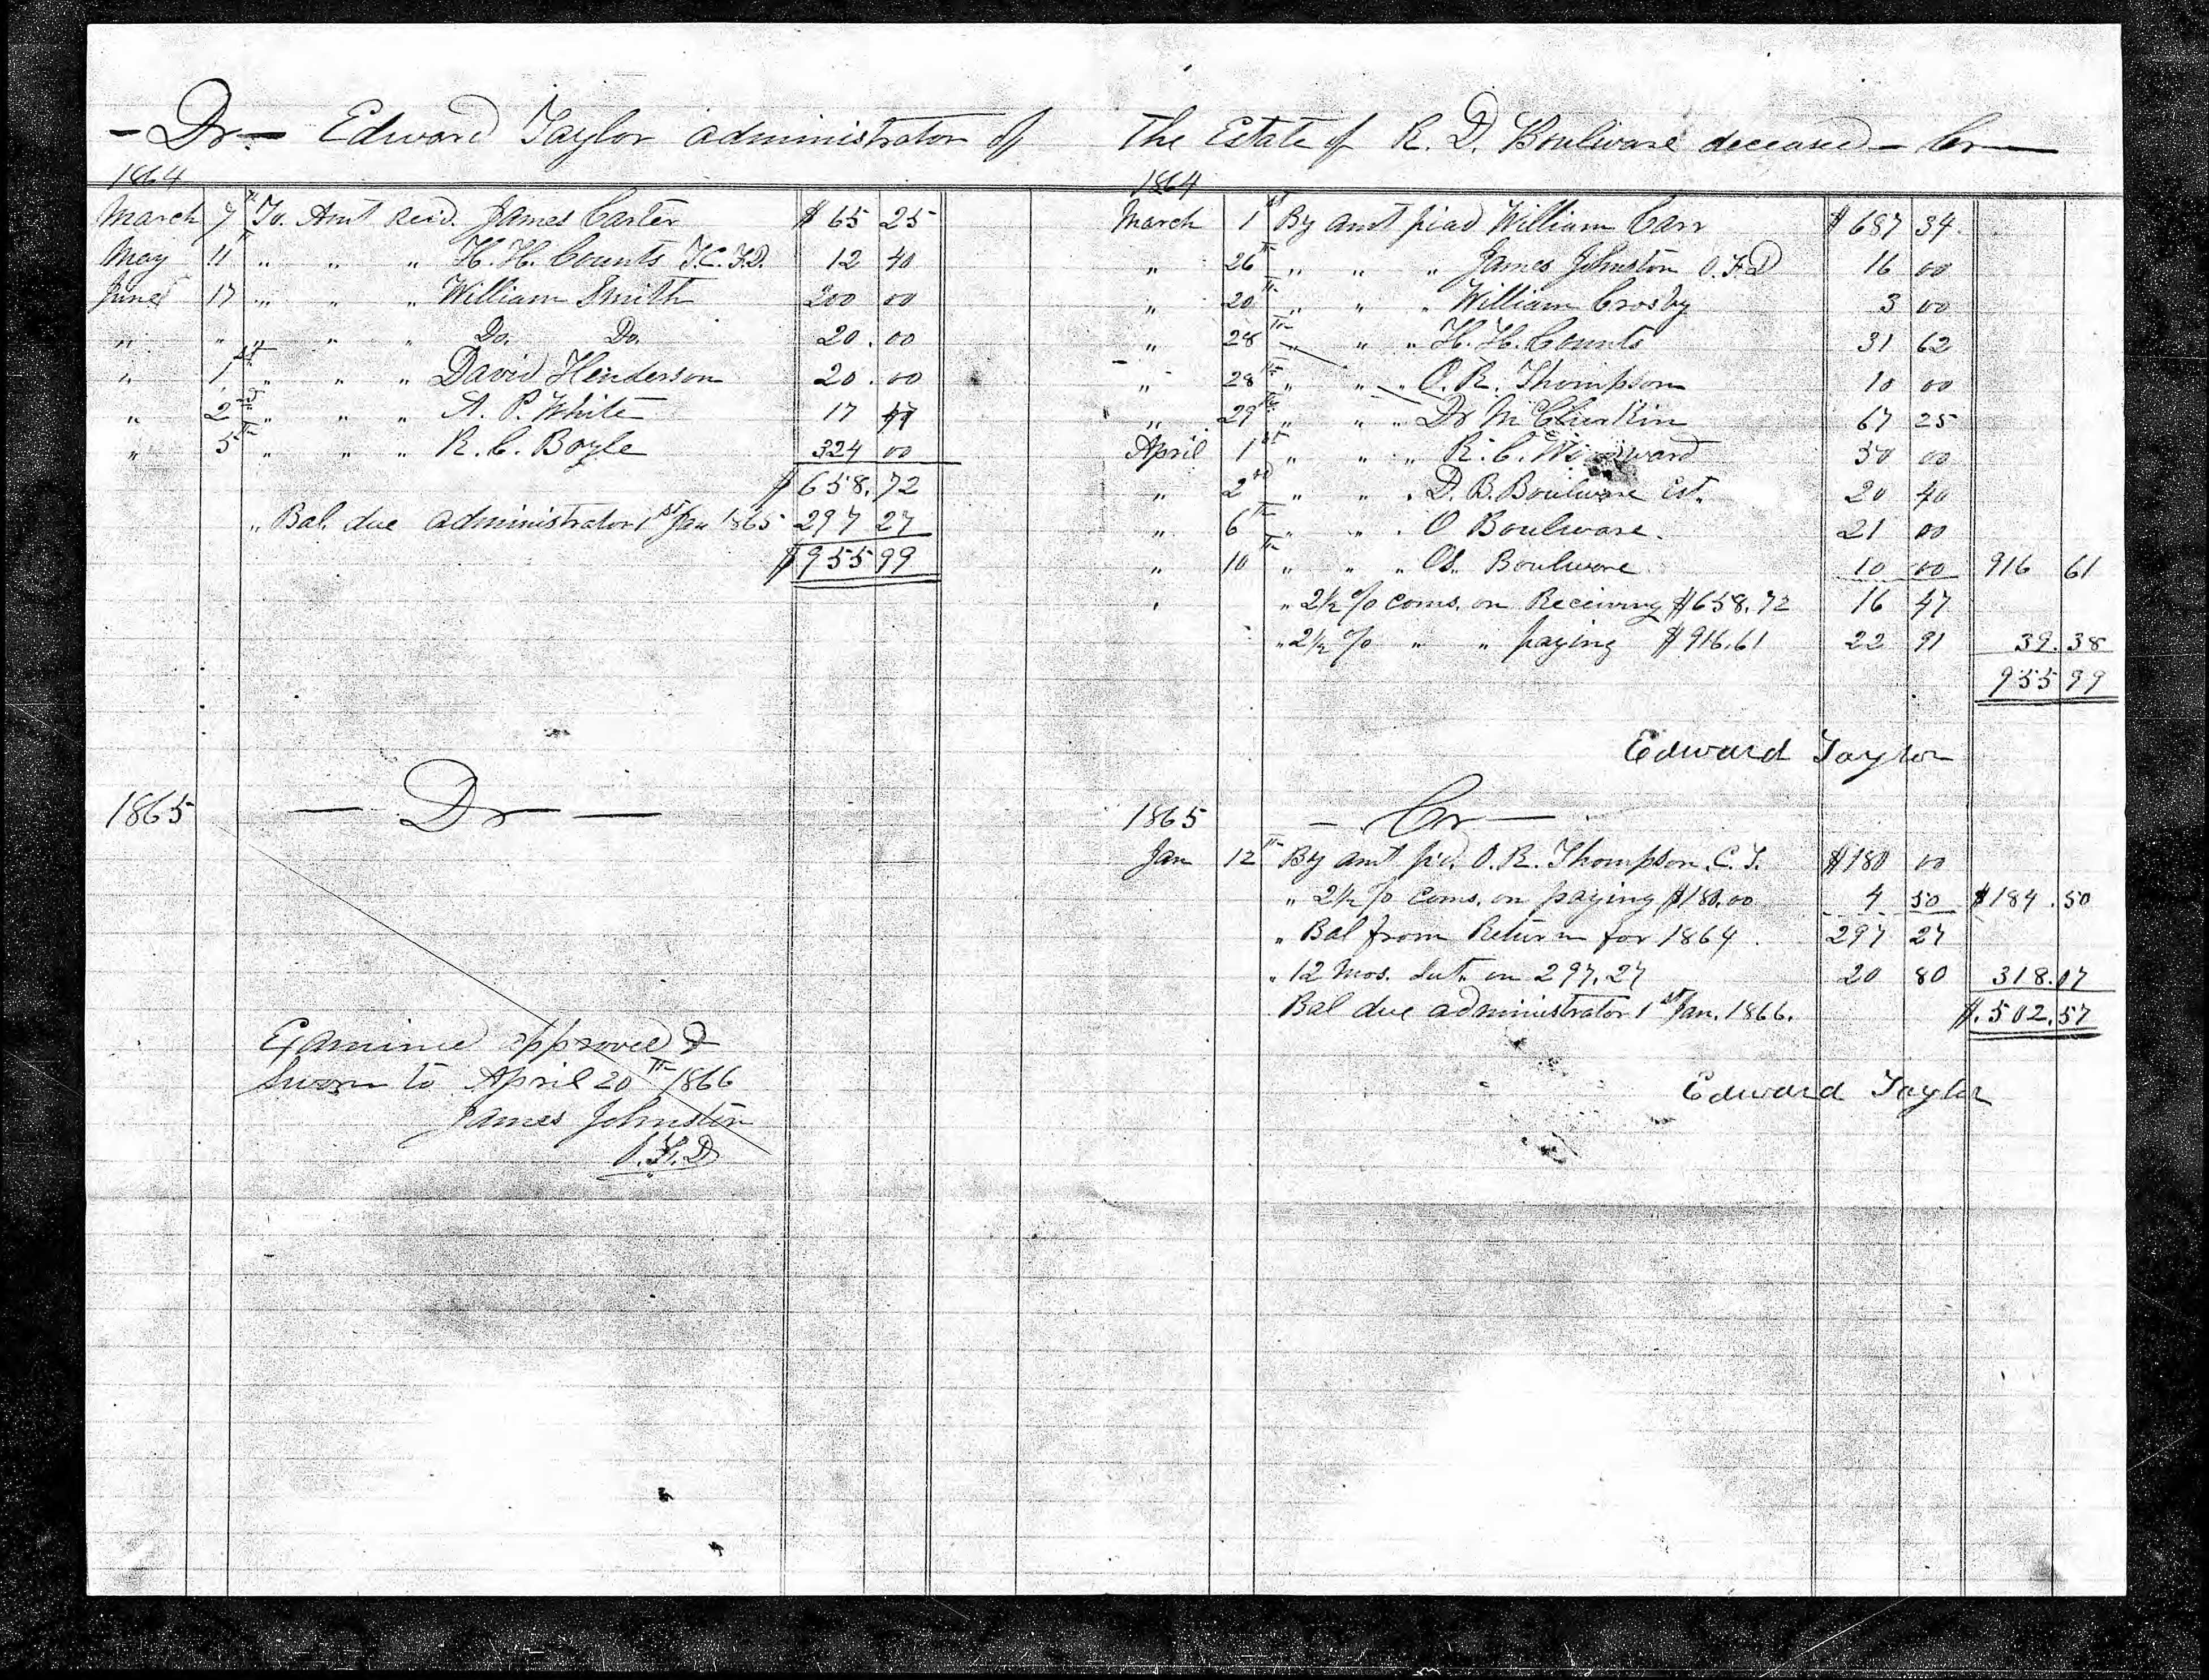 — Dr — Edward Taylor administrator of The Estate of R. D. Bouliware deceased — Cr —
1864
March 7th To. Amt Recd. James Carter $ 65 25
May 11th " " " H. H. Counts T.C.F.D. 12 40
June 17 " " " William Smith 200 00
" " " " " Do. Do. 20. 00
" 1st " " " David Henderson 20. 00
" 2nd " " " A. P. White 17 07
" 5th " " " R. C. Boyle 324 00
$ 658. 72
" Bal. due administrator 1st Jan 1865 297 27
$ 955 99
1864
March 1st By amt piad William Carr $ 687 34
" 26th " " " James Johnston O.F.D 16 00
" 20th " " " William Crosby 3 00
" 28th " " " H. H. Counts 31 62
" 28th " " " O. R. Thompson 10 00
" 29th " " " Dr McClurkin 67 25
April 1st " " " R. C. 50 00
" 2nd " " " D. B. Boulware Est. 20 40
" 6th " " " O Boulware. 21 00
" 10th " " " Os. Boulware 10 00 916 61
" 2½ % coms. on Receiving $658.72 16 47
" 2½ % " " paying $916.61 22 91 39. 38
955 99
Edward Taylor
1865 — Dr —
1865 — Cr —
Jan 12th By amt pd. O. R. Thompson. C. T. $180 00
" 2½ % coms. on paying $180.00 4 50 $184. 50
" Bal from Return for 1864. 297 27
" 12 Mos. Int. on 297.27 20 80 318.07
Bal due administrator 1st Jan. 1866. $. 502. 57
Edward Taylor
Examined approved &
Sworn to April 20th 1866
James Johnston
O.F.D